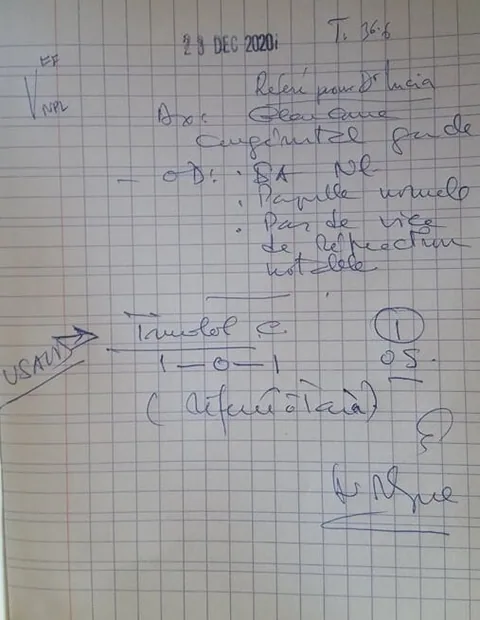 23 DEC 2020
T: 36.6
V
NPL
Référé pour Dr Lucia
Dx: Glaucome
congénital gauche
- OD: • SA Nl
• Papille normale
• Pas de vice
de réfraction
notable
USAID
Timolol C. 1
1-0-1 OS.
Dr